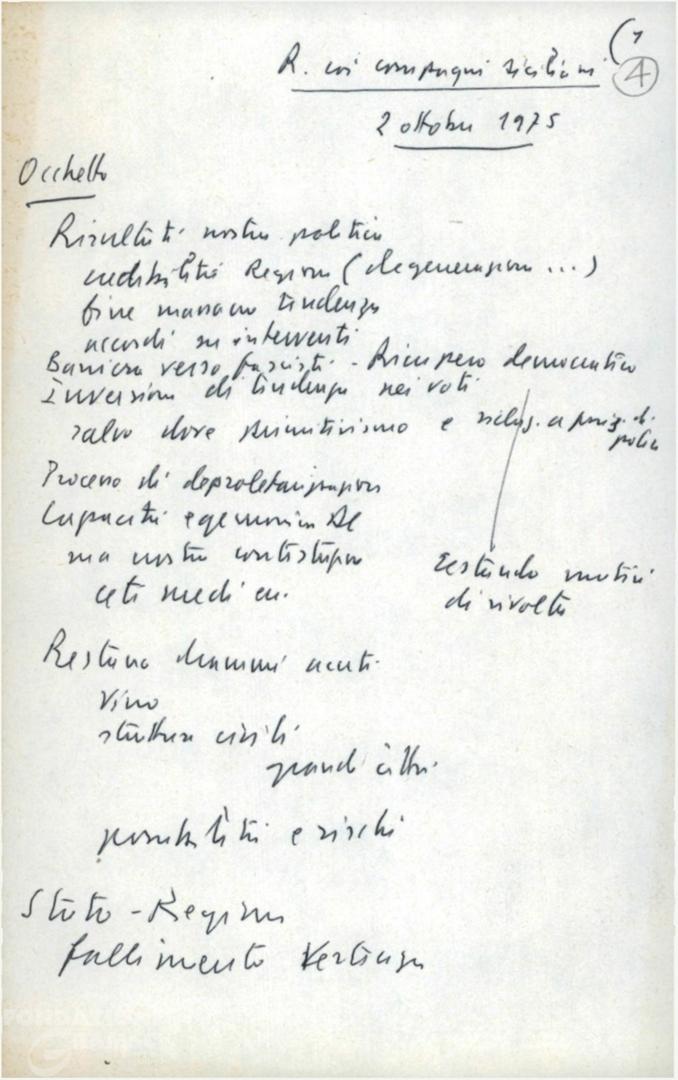 (1
4
R. coi compagni siciliani
2 ottobre 1975
Occhetto
Risultati nostra politica
credibilità Regione (degenerazione ...)
fine massacro tendenza
accordi su interventi
Barriera verso fascisti - Recupero democratico
Inversione di tendenza nei voti
salvo dove primitivismo e
Processo di deproletarizzazione
Capacità egemonica
ma nostra controtendenza
ceti medi ecc.
Restando motivi
di rivolta
Restano drammi acuti
vino
strutture civili
grandi città
possibilità e rischi
Stato - Regione
fallimento Vertenza